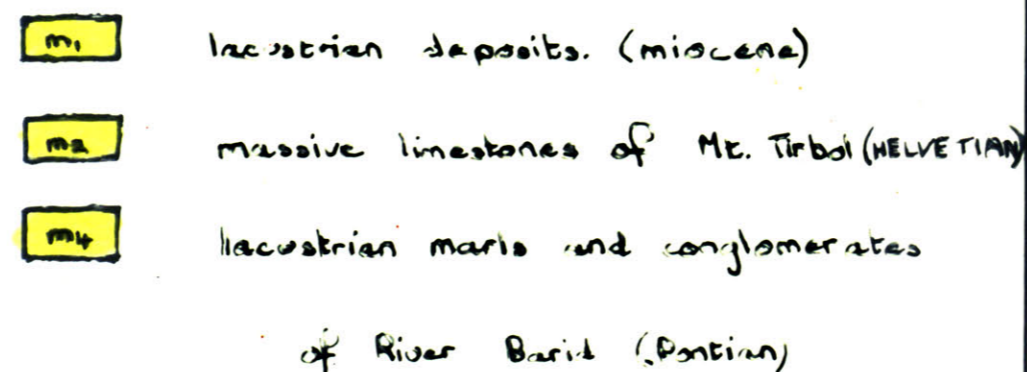 m1 lacustrian deposits. (miocene)
m2 massive limestones of Mt. Tirbol (HELVETIAN)
m4 lacustrian marls and conglomerates
of River Barid (Pontian)